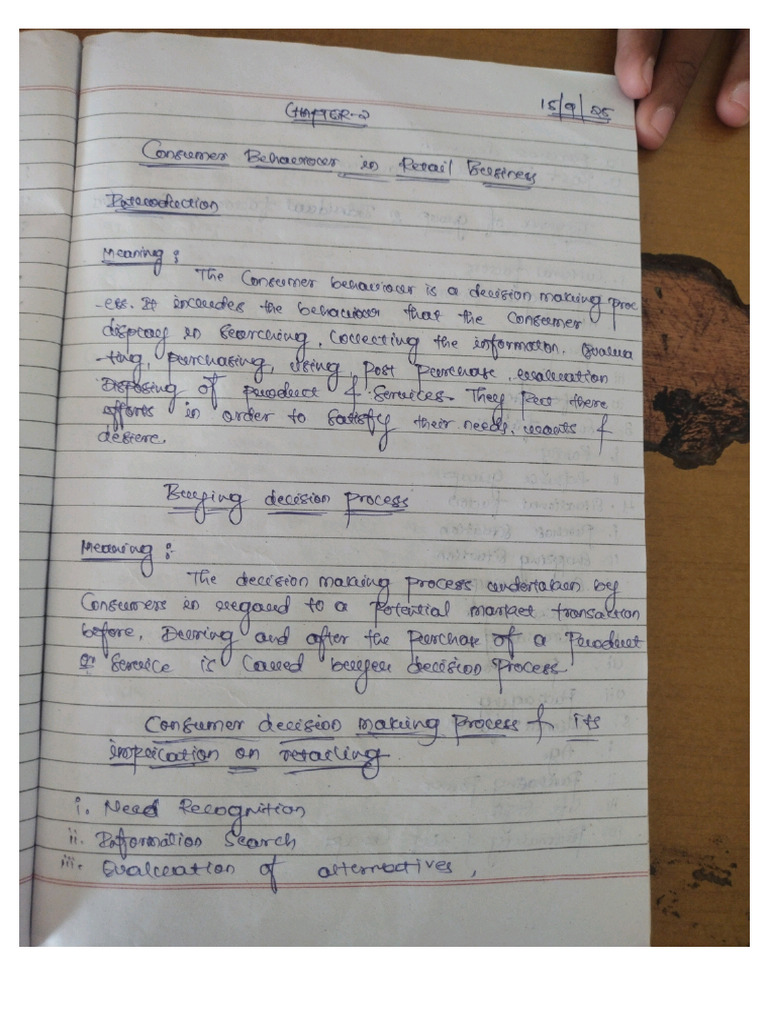 CHAPTER-2
15/9/25
Consumer Behaviour in Retail Business
Introduction
Meaning :
The Consumer behaviour is a decision making proc
-ess. It includes the behaviour that the Consumer
display in Searching, Collecting the information, Evalua
-ting, purchasing, using, post purchase, evaluation
Disposing of product & Services. They put there
efforts in order to satisfy their needs, wants &
desire.
Buying decision process
Meaning :-
The decision making process undertaken by
Consumers in regard to a potential market transaction
before, During and after the purchase of a product
or service is Called buyer decision process
Consumer decision making process & its
implication on retailing
i. Need Recognition
ii. Information Search
iii. Evaluation of alternatives,